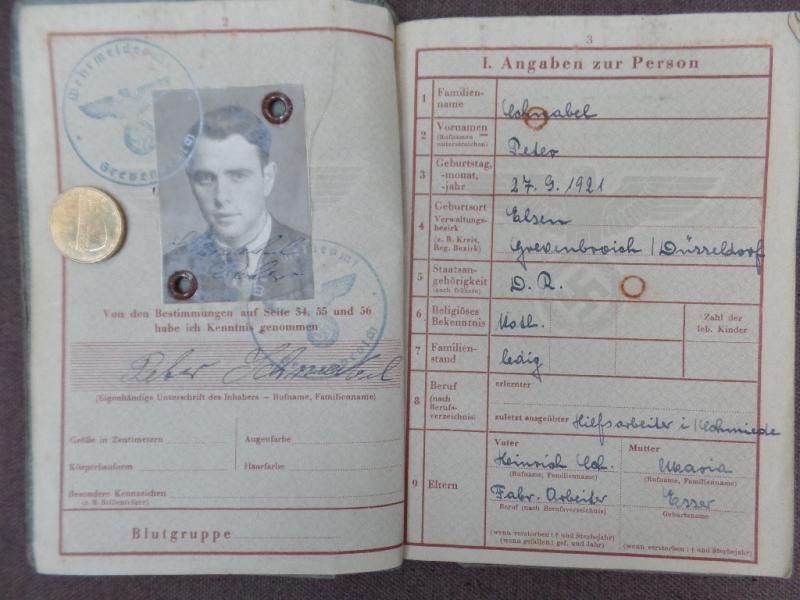 2
Wehrmeldeamt
Grevenbroich
Von den Bestimmungen auf Seite 34, 55 und 56
habe ich Kenntnis genommen
Peter Schnabel
(Eigenhändige Unterschrift des Inhabers — Rufname, Familienname)
Größe in Zentimetern
Augenfarbe
Körperbauform
Haarfarbe
Besondere Kennzeichen
(z. B. Brillenträger)
Blutgruppe
3
I. Angaben zur Person
1 Familien-
name
Schnabel
2 Vornamen
(Rufnamen
unterstreichen)
Peter
3 Geburtstag,
-monat,
-jahr
27. 9. 1921
4 Geburtsort
Verwaltungs-
bezirk
(z. B. Kreis,
Reg. Bezirk)
Elsen
Grevenbroich / Düsseldorf
5 Staatsan-
gehörigkeit
(auch frühere)
D. R.
6 Religiöses
Bekenntnis
Kath.
Zahl der
leb. Kinder
7 Familien-
stand
ledig
8 Beruf
(nach
Berufs-
verzeichnis)
erlernter
zuletzt ausgeübter Hilfsarbeiter i / Schmiede
9 Eltern
Vater
Heinrich Sch.
(Rufname, Familienname)
Fabr. Arbeiter
Beruf (nach Berufsverzeichnis)
(wenn verstorben: † und Sterbejahr)
(wenn gefallen: gef. und Jahr)
Mutter
Maria
(Rufname, Familienname)
Esser
Geburtsname
(wenn verstorben: † und Sterbejahr)